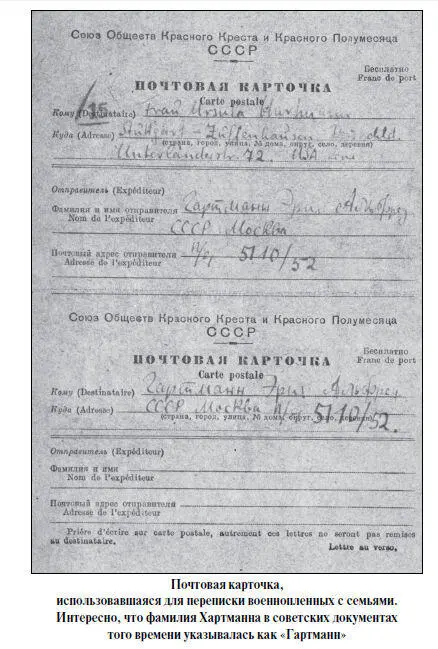 Союз Обществ Красного Креста и Красного Полумесяца
СССР
Бесплатно
Franc de port
ПОЧТОВАЯ КАРТОЧКА
Carte postale
15
Кому (Destinataire) Frau Ursula Hartmann
Куда (Adresse) Stuttgart-Zuffenhausen
(страна, город, улица, № дома, округ, село, деревня)
Unterländerstr 72. USA
Отправитель (Expéditeur)
Фамилия и имя отправителя Гартманн Эрих Альфред
Nom de l'expéditeur
СССР Москва
Почтовый адрес отправителя п/я 5110/52
Adresse de l'expéditeur
Союз Обществ Красного Креста и Красного Полумесяца
СССР
Бесплатно
Franc de port
ПОЧТОВАЯ КАРТОЧКА
Carte postale
Кому (Destinataire) Гартманн Эрих Альфред
Куда (Adresse) СССР Москва п/я 5110/52.
(страна, город, улица, № дома, округ, село, деревня)
Отправитель (Expéditeur)
Фамилия и имя
Nom de l'expéditeur
Почтовый адрес отправителя
Adresse de l'expéditeur
Prière d'écrire sur carte postale, autrement ces lettres ne seront pas remises
au destinataire.
Lettre au verso.
Почтовая карточка,
использовавшаяся для переписки военнопленных с семьями.
Интересно, что фамилия Хартманна в советских документах
того времени указывалась как «Гартманн»